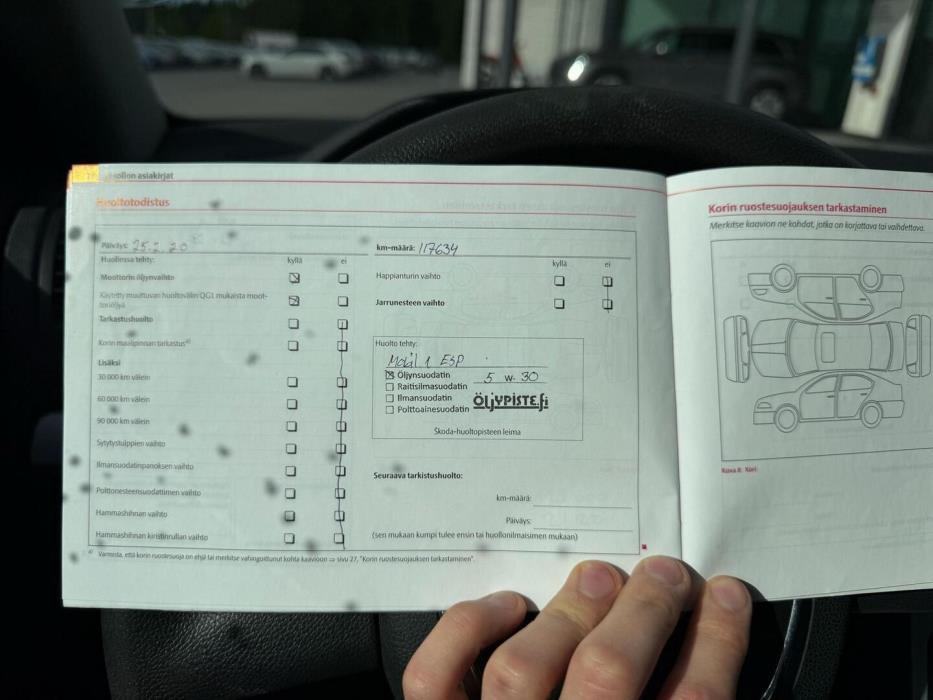 Huollon asiakirjat
Huoltotodistus
Päiväys: 25.2.20
Huollossa tehty: kyllä ei
Moottorin öljynvaihto
Käytetty muuttuvan huoltovälin QG1 mukaista moot-
toriöljyä
Tarkastushuolto
Korin maalipinnan tarkastus
Lisäksi
30 000 km välein
60 000 km välein
90 000 km välein
Sytytystulppien vaihto
Ilmansuodatinpanoksen vaihto
Polttonesteensuodattimen vaihto
Hammashihnan vaihto
Hammashihnan kiristinrullan vaihto
km-määrä: 117634
kyllä ei
Happianturin vaihto
Jarrunesteen vaihto
Huolto tehty:
Mobil 1 ESP
Öljynsuodatin 5 W-30
Raitisilmasuodatin
Ilmansuodatin ÖLJYPISTE.fi
Polttoainesuodatin
Skoda-huoltopisteen leima
Seuraava tarkistushuolto:
km-määrä:
Päiväys:
(sen mukaan kumpi tulee ensin tai huollonilmaisimen mukaan)
Varmista, että korin ruostesuoja on ehjä tai merkitse vahingoittunut kohta kaavioon ⇒ sivu 27, "Korin ruostesuojauksen tarkastaminen".
Korin ruostesuojauksen tarkastaminen
Merkitse kaavion ne kohdat, jotka on korjattava tai vaihdettava.
Kuva 8: Kori